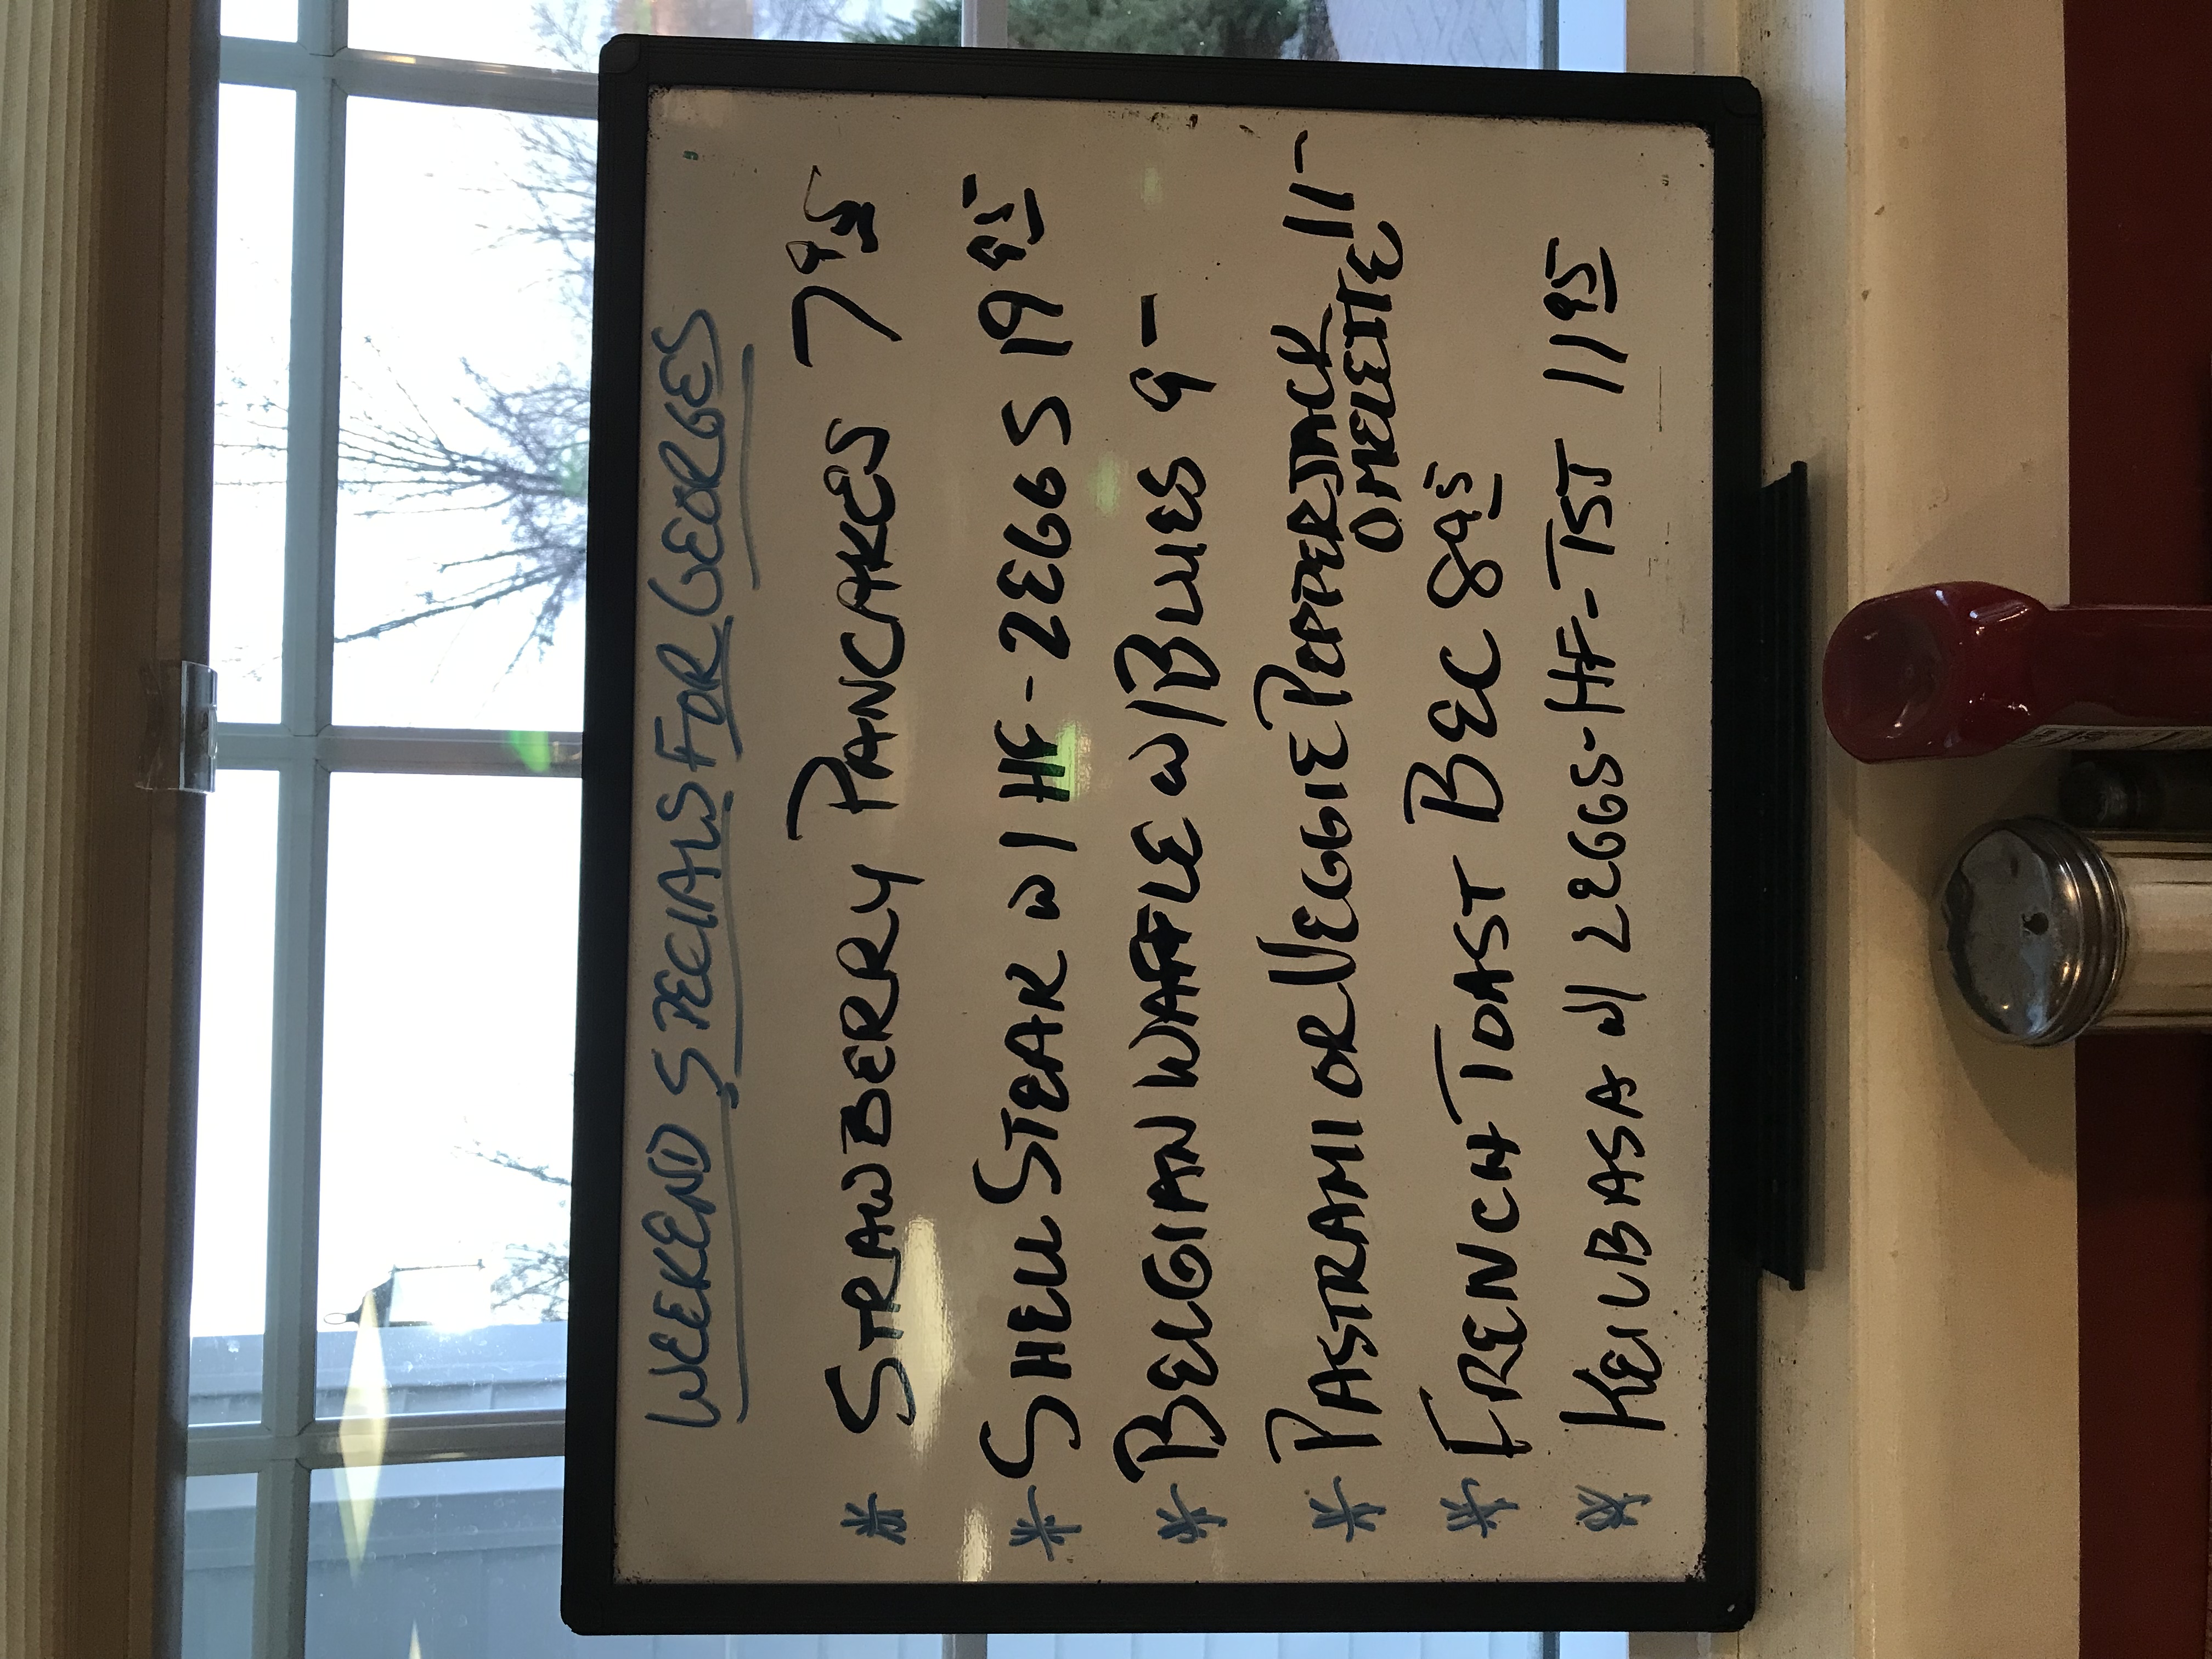 WEEKEND SPECIALS FOR GEORGES
* STRAWBERRY PANCAKES 7 95
* SHELL STEAK W/ HF - 2 EGGS 19 95
* BELGIAN WAFFLE W/ BLUES 9 -
* PASTRAMI OR VEGGIE PEPPERJACK 11 -
OMELETTE
* FRENCH TOAST BEC 8 95
* KEILBASA W/ 2 EGGS - HF - TST 11 95